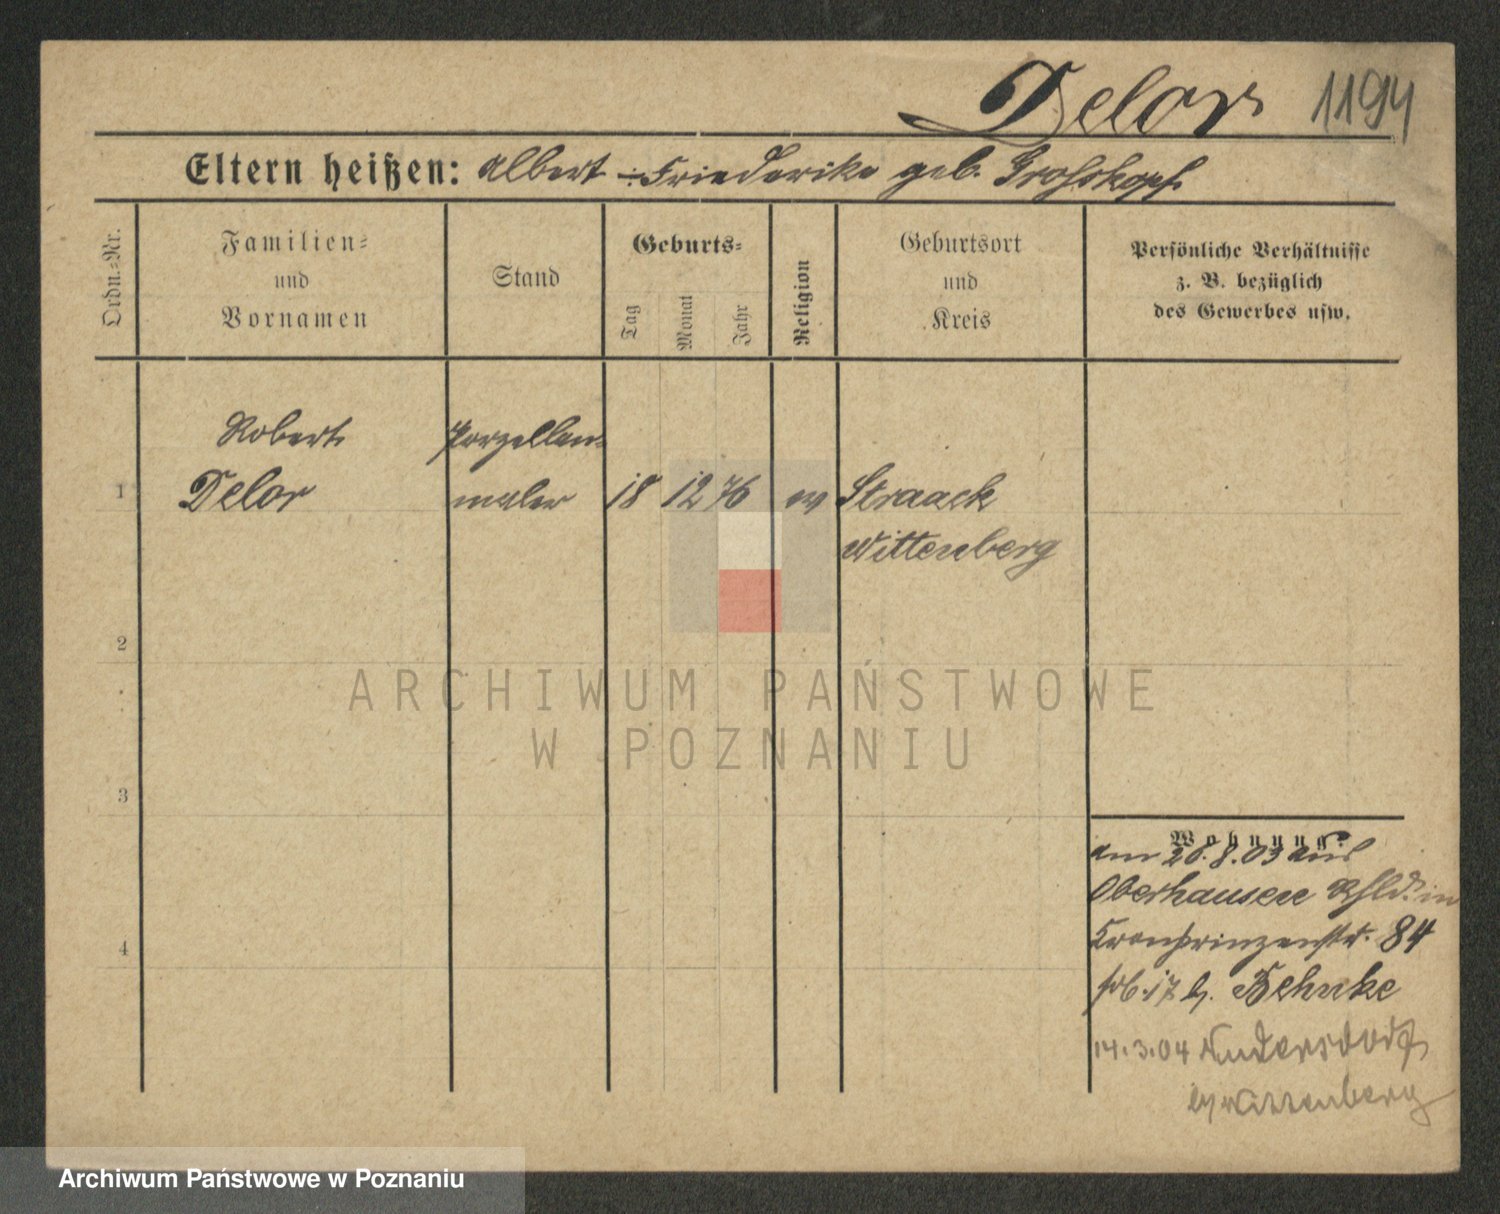 Delor 1194
Eltern heißen: Albert - Friederike geb. Grosskopf
Ordn.-Nr.
Familien-
und
Vornamen
Stand
Geburts-
Tag
Monat
Jahr
Religion
Geburtsort
und
Kreis
Persönliche Verhältnisse
z. B. bezüglich
des Gewerbes usw.
1
Robert
Delor
Porzellan-
maler
18 12 76 ev Straack
Wittenberg
2
3
4
Wohnung:
am 26.8.03 aus
Oberhausen Rhld. in
Kronprinzenstr. 84
b. Behnke
14.3.04
b/ Wittenberg
ARCHIWUM PAŃSTWOWE
W POZNANIU
Archiwum Państwowe w Poznaniu